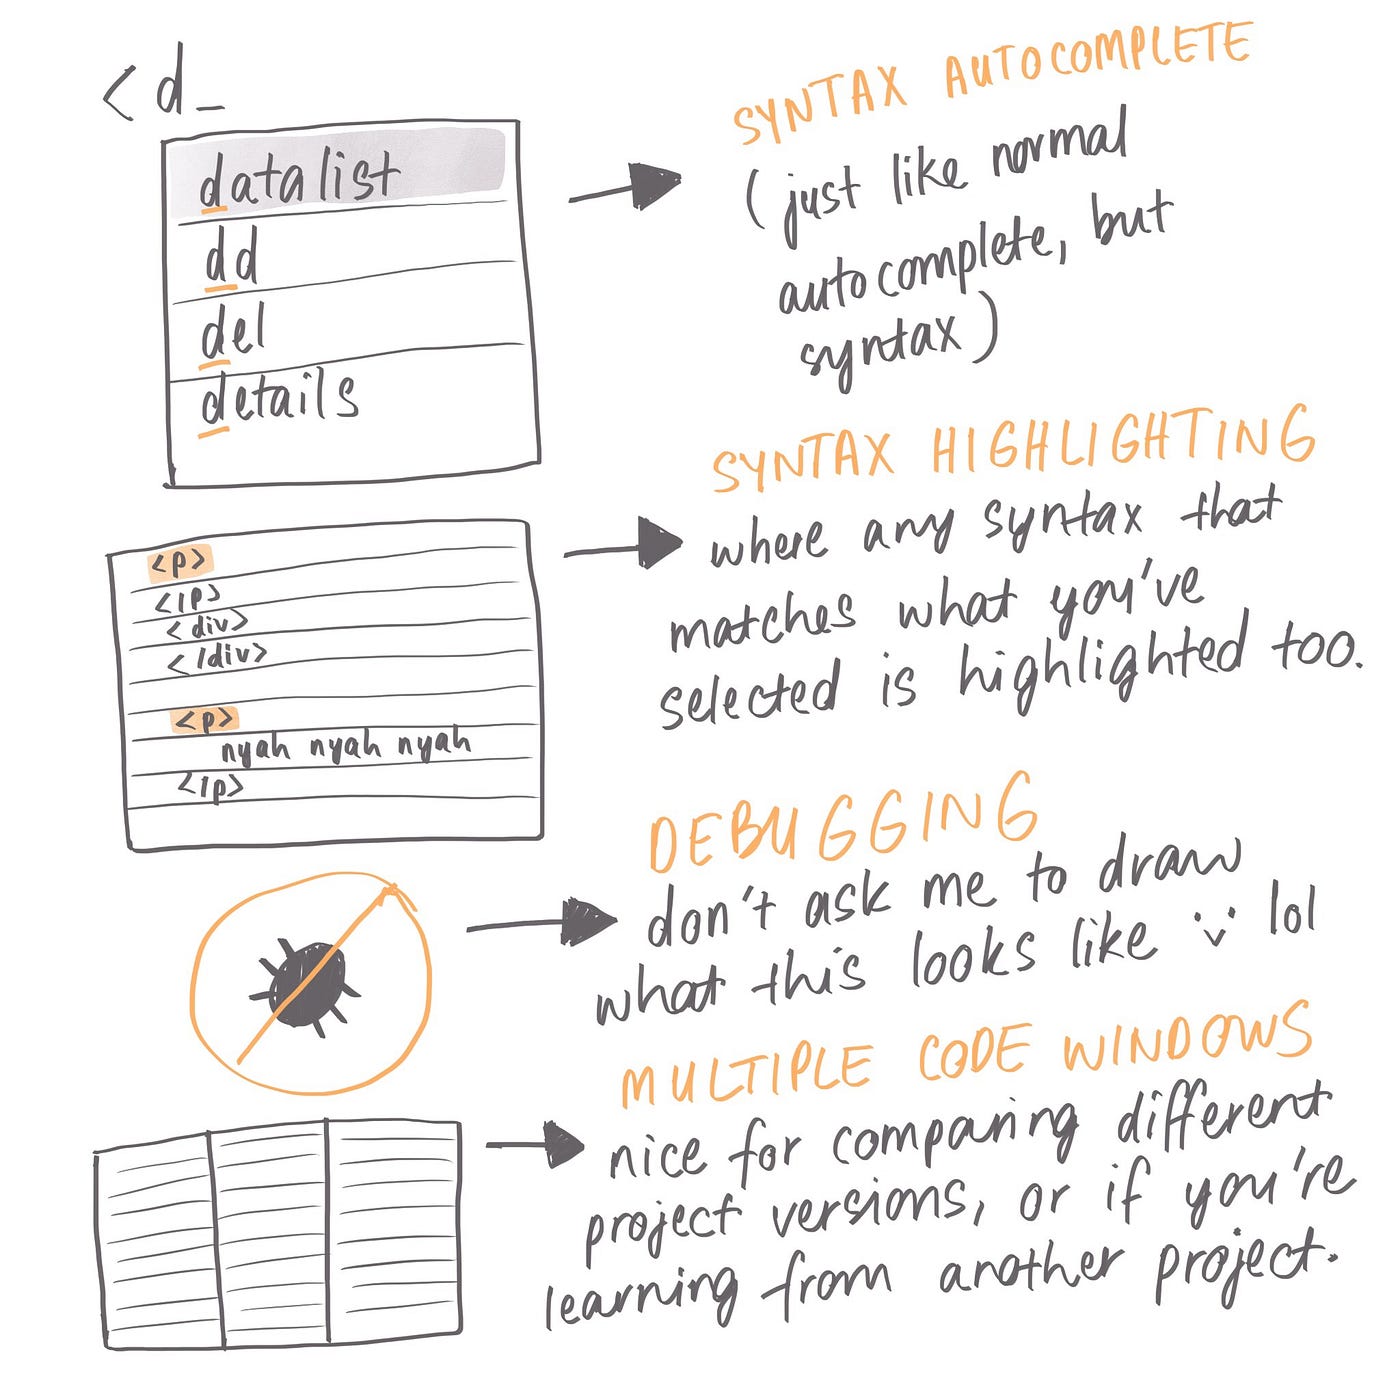 <d_
datalist
dd
del
details
SYNTAX AUTOCOMPLETE
(just like normal
autocomplete, but
syntax)
<p>
</p>
<div>
</div>
<p>
nyah nyah nyah
</p>
SYNTAX HIGHLIGHTING
where any syntax that
matches what you've
selected is highlighted too.
DEBUGGING
don't ask me to draw
what this looks like :v lol
MULTIPLE CODE WINDOWS
nice for comparing different
project versions, or if you're
learning from another project.